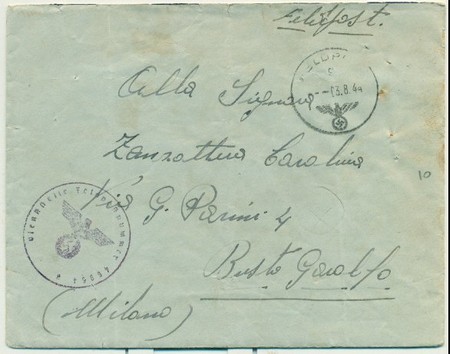 Feldpost.
FELDPOST
13.8.44
Alla Signora
Zanzottera Carolina
Via G. Parini 4
Busto Garolfo
(Milano)
Dienststelle Feldpostnummer
10